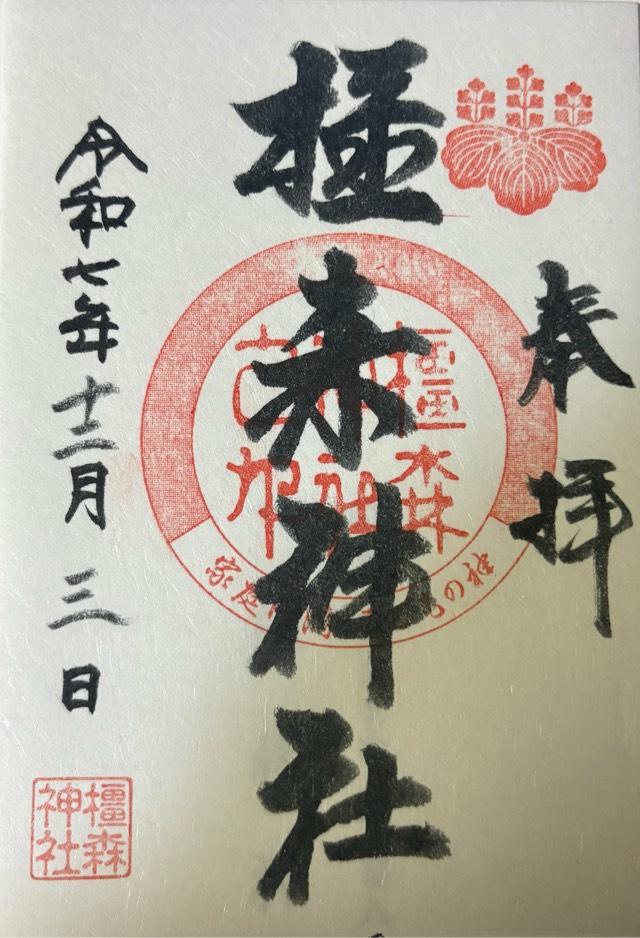 奉拝
橿森神社
橿森
神社
家庭
の神
令和七年十二月三日
橿森
神社